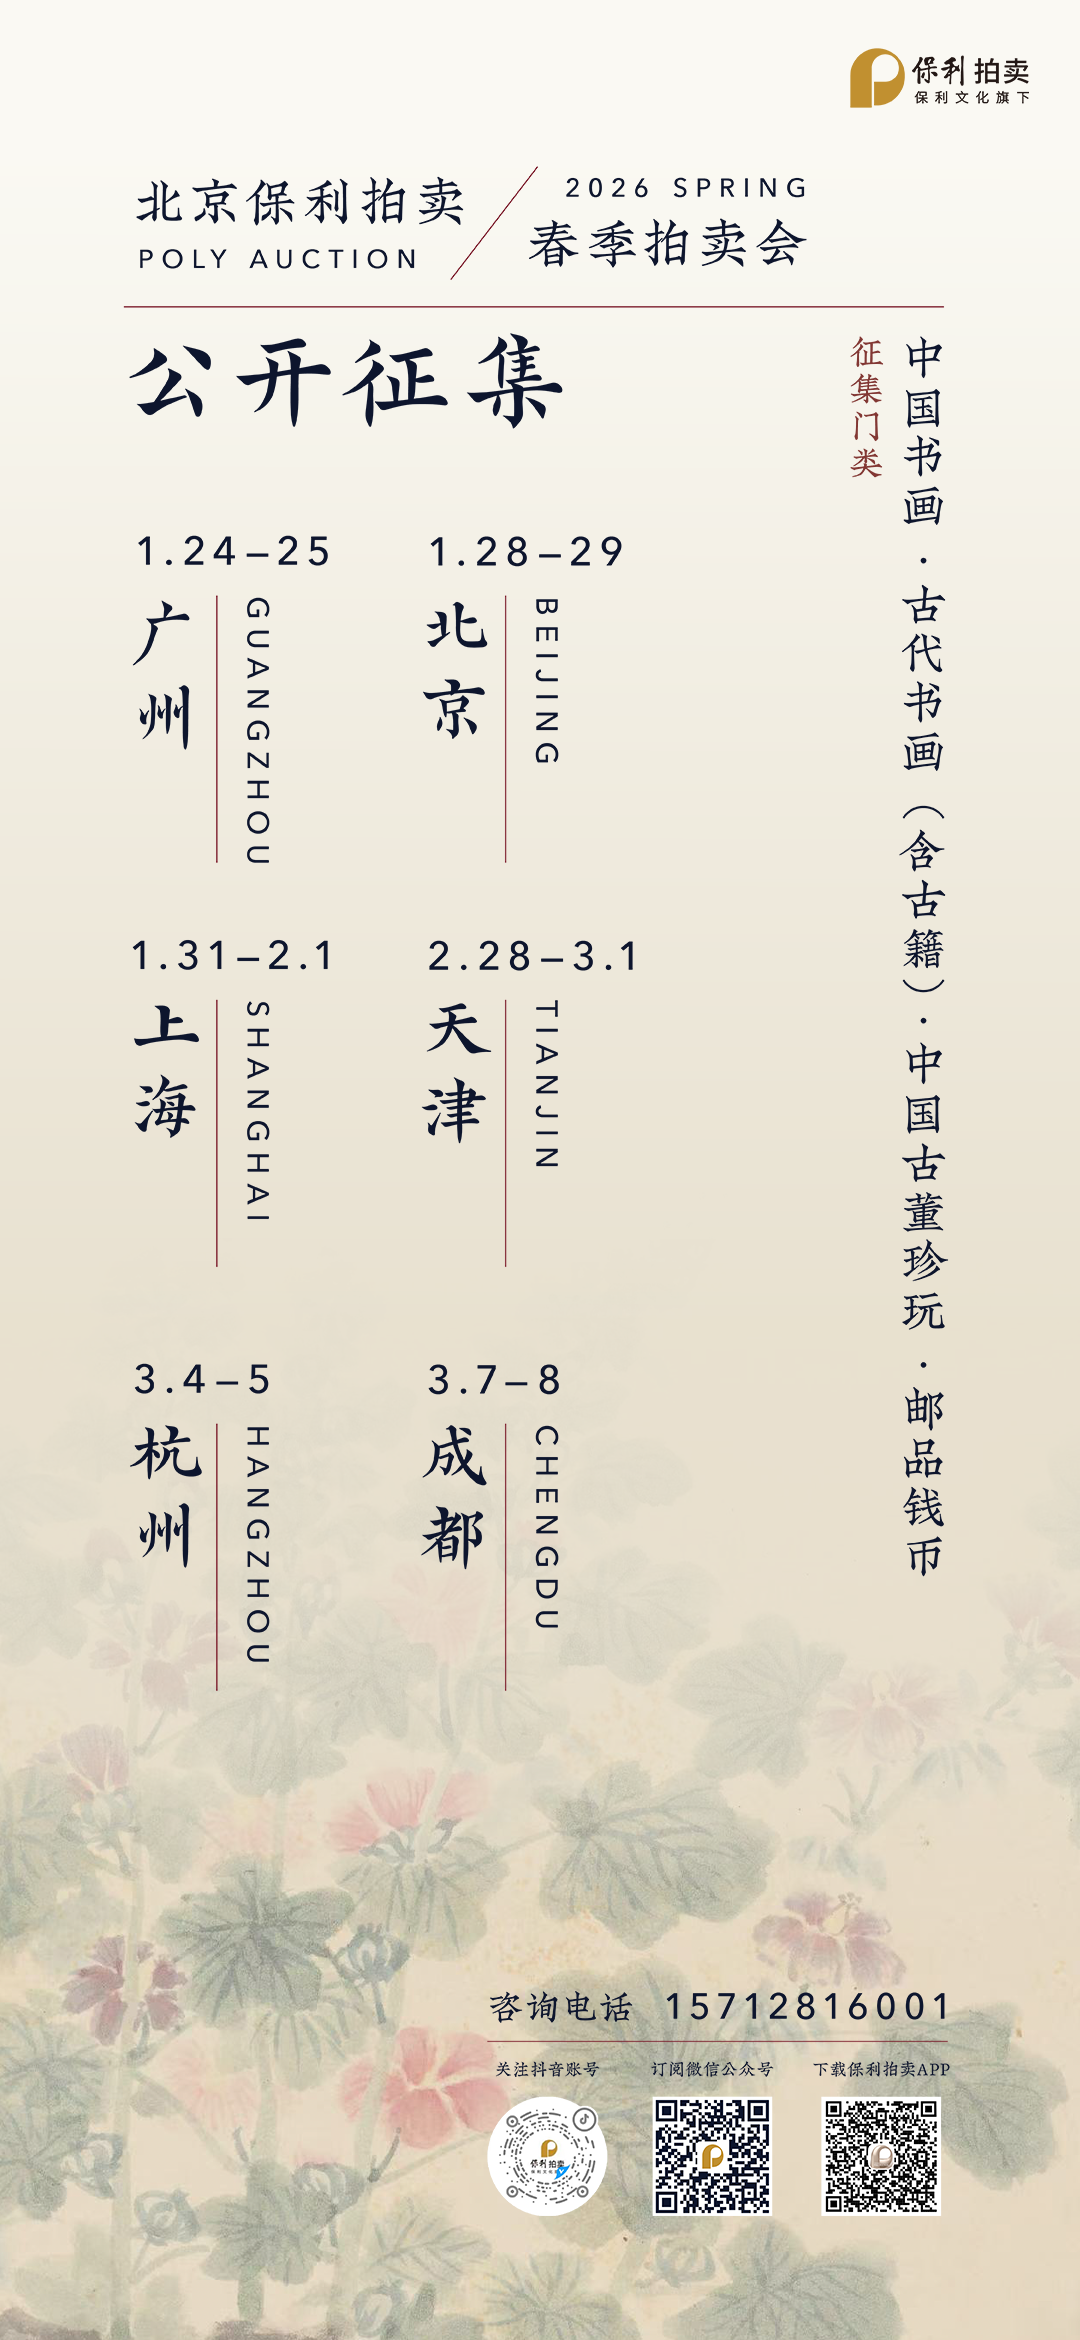 保利拍卖
保利文化旗下
北京保利拍卖
POLY AUCTION
2026 SPRING
春季拍卖会
公开征集
征集门类
中国书画·古代书画（含古籍）·中国古董珍玩·邮品钱币
1.24–25
广州
GUANGZHOU
1.28–29
北京
BEIJING
1.31–2.1
上海
SHANGHAI
2.28–3.1
天津
TIANJIN
3.4–5
杭州
HANGZHOU
3.7–8
成都
CHENGDU
咨询电话 15712816001
关注抖音账号
订阅微信公众号
下载保利拍卖APP
保利拍卖